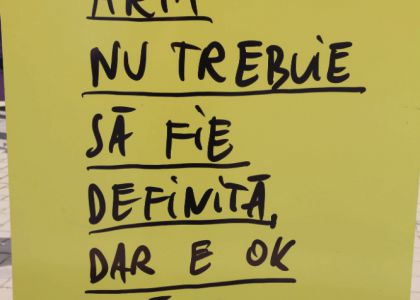 NU TREBUIE
SĂ FIE
DEFINITĂ,
DAR E OK